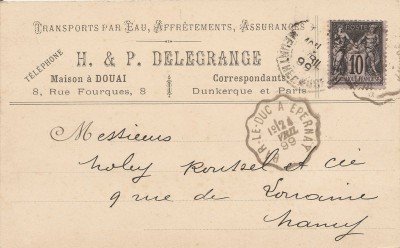 TRANSPORTS PAR EAU, AFFRÊTEMENTS, ASSURANCES
TÉLÉPHONE
H. & P. DELEGRANGE
Maison à DOUAI
8, Rue Fourques, 8
Correspondants
Dunkerque et Paris
10
R-LE-DUC A EPERNAY
99
Messieurs
Noley Roussel et cie
9 rue de Lorraine
Nancy